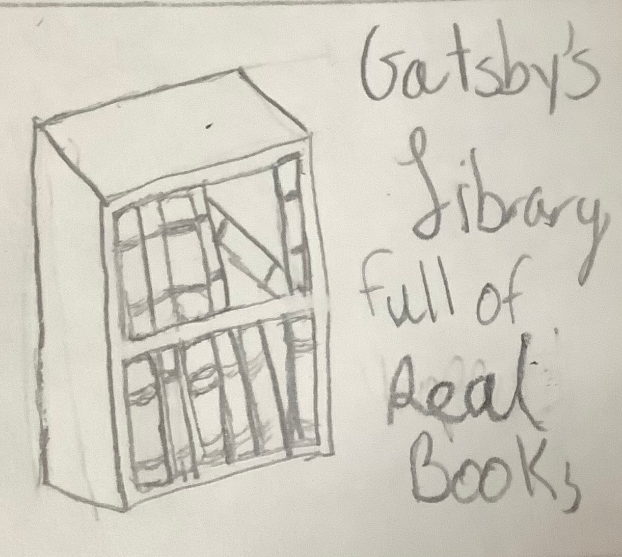 Gatsby's
Library
full of
Real
Books